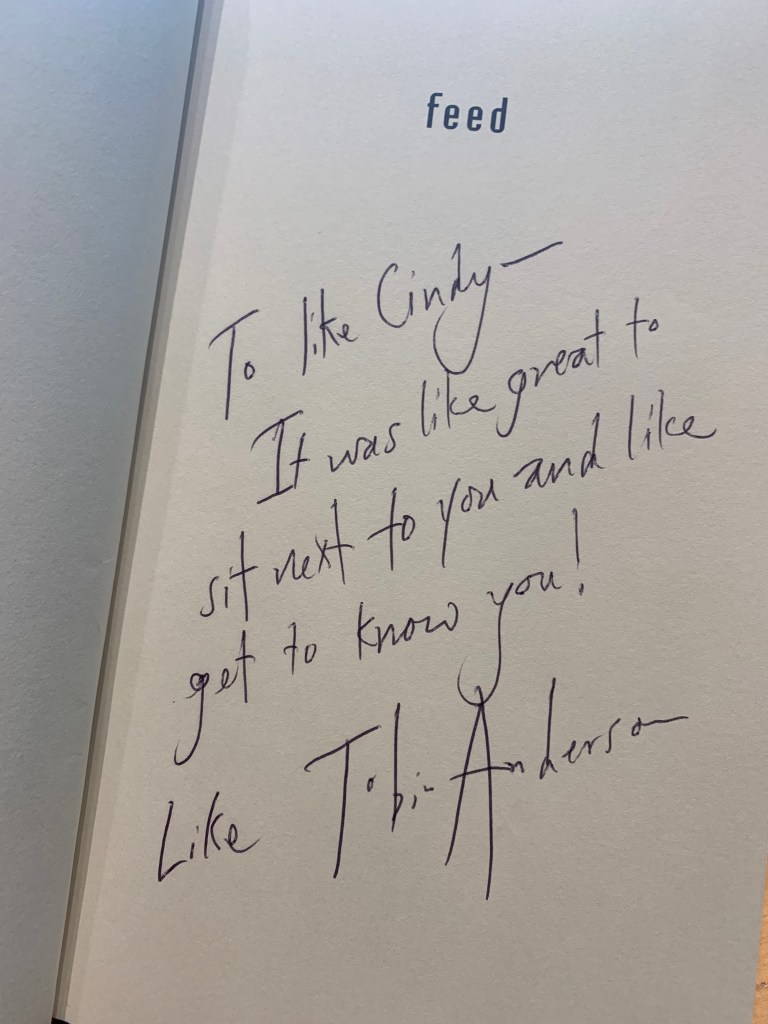 feed
To like Cindy—
It was like great to
sit next to you and like
get to know you!
Like Tobin Anderson